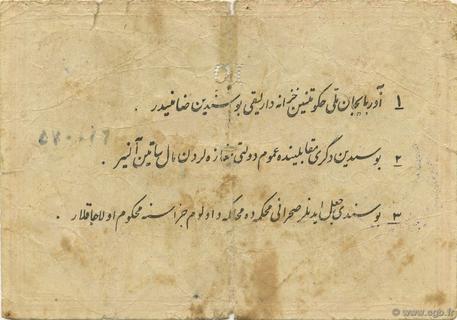 ۱ آذربایجان ملی حکومتنین خزانه دارلیقی بو سندین ضامنیدیر .
۲ بو سندین دگری مقابلینده عموم دولتی مغازه لردن مال ساتین آلنیر .
۳ بو سندی جعل ایدنلر صحرائی محکمه ده محاکمه و اولوم جزاسنه محکوم اولاجاقلار .
© www.cgb.fr